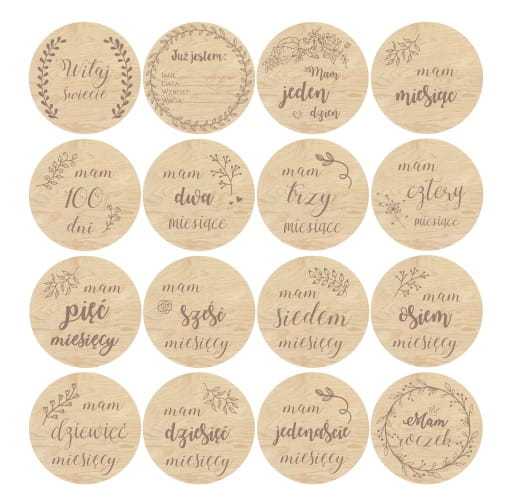 Witaj
świecie
Już jestem:
IMIĘ
DATA
WZROST
WAGA
Mam
jeden
dzień
mam
miesiąc
mam
100
dni
mam
dwa
miesiące
mam
trzy
miesiące
mam
cztery
miesiące
mam
pięć
miesięcy
mam
sześć
miesięcy
mam
siedem
miesięcy
mam
osiem
miesięcy
mam
dziewięć
miesięcy
mam
dziesięć
miesięcy
mam
jedenaście
miesięcy
Mam
roczek